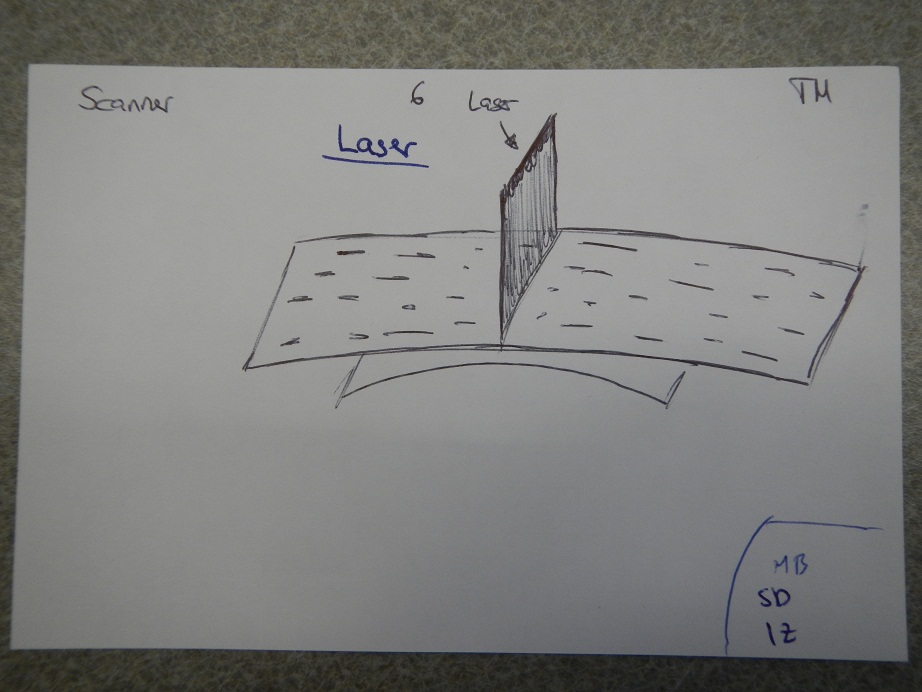 Scanner 6 Laser TM
Laser
MB
SD
IZ